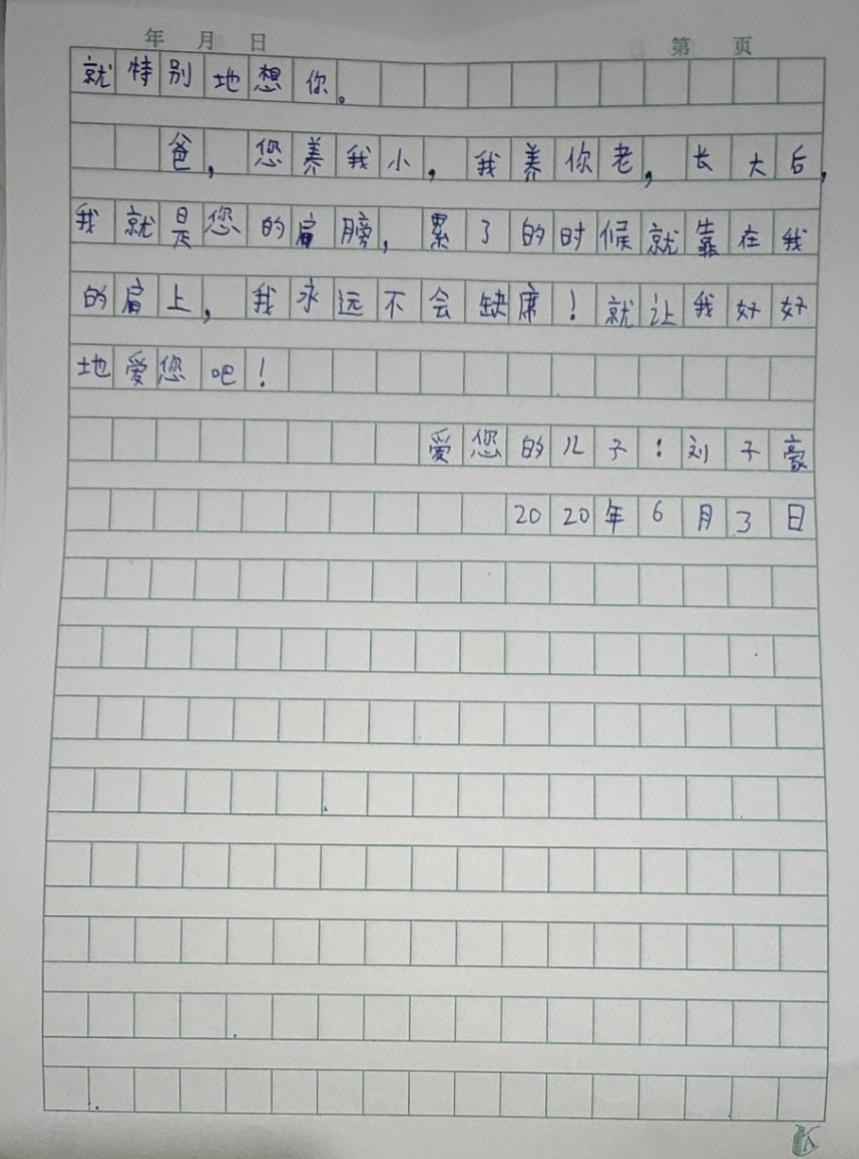 年 月 日 第 页
就特别地想你。
爸，您养我小，我养你老，长大后，
我就是您的肩膀，累了的时候就靠在我
的肩上，我永远不会缺席！就让我好好
地爱您吧！
爱您的儿子：刘子豪
2020年6月3日